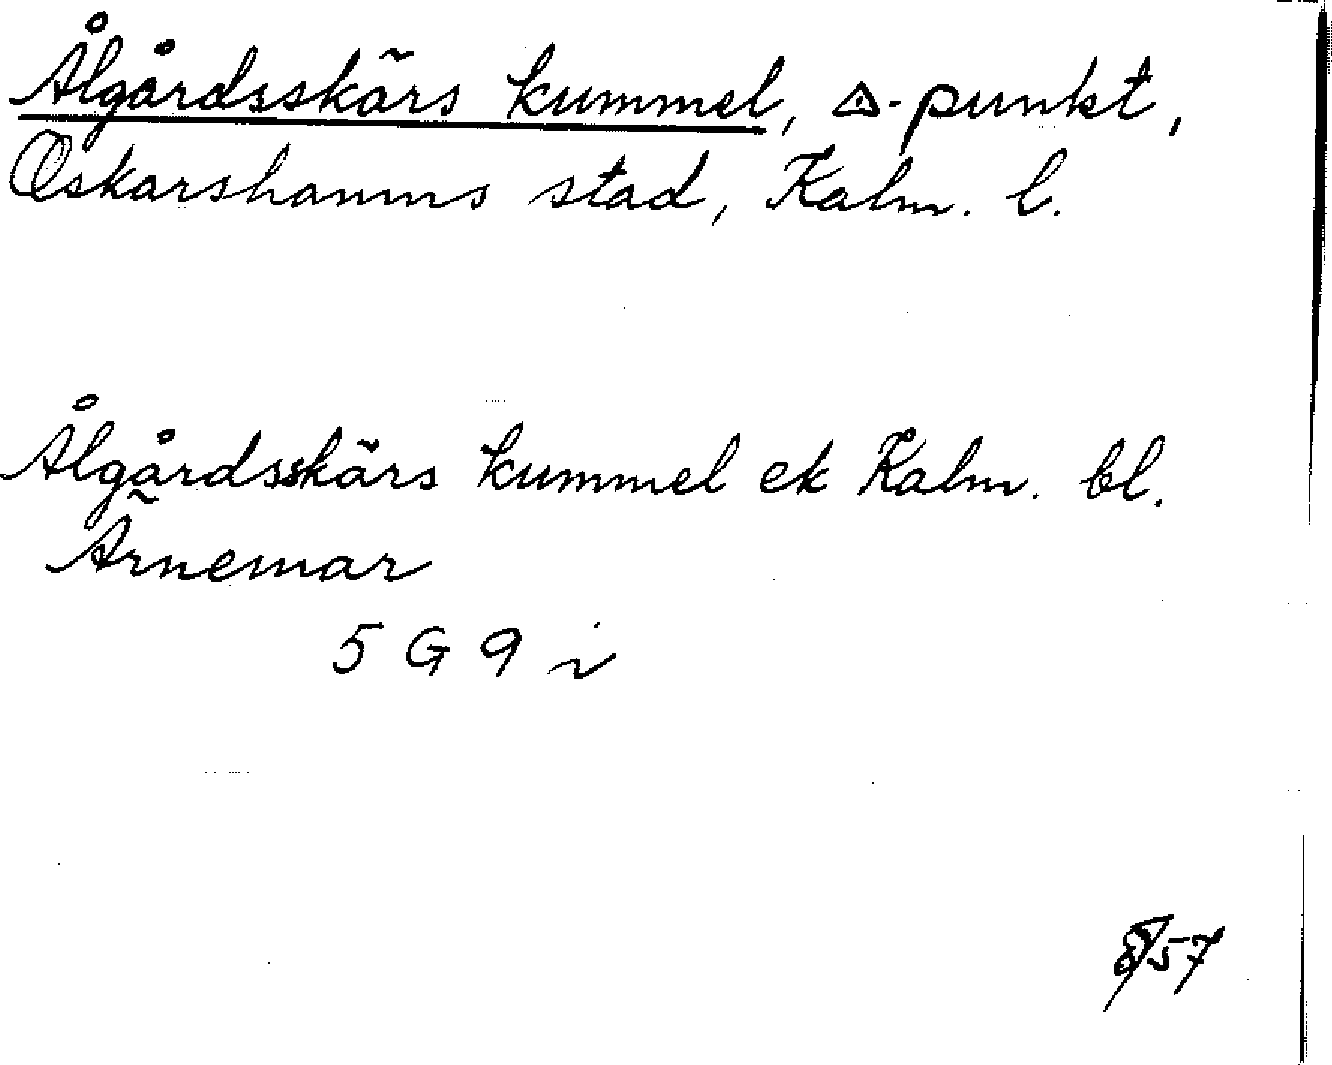 Ålgårdsskärs kummel, △-punkt,
Oskarshamns stad, Kalm. l.
Ålgårdsskärs kummel ek Kalm. bl.
Ärnemar
5 G 9 i
8/57